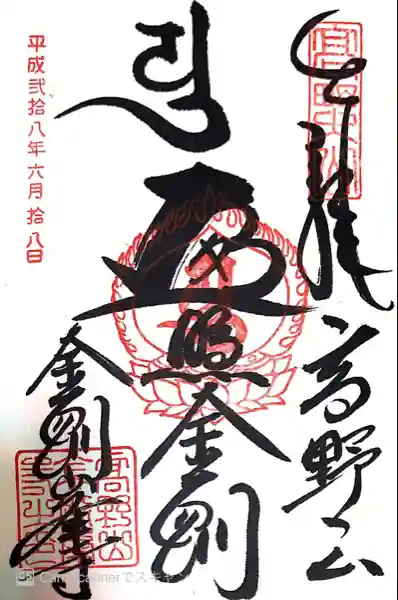 奉拝 高野山
遍照金剛
金剛峯寺
平成弐拾八年六月拾八日
高野山
CamScannerでスキャン